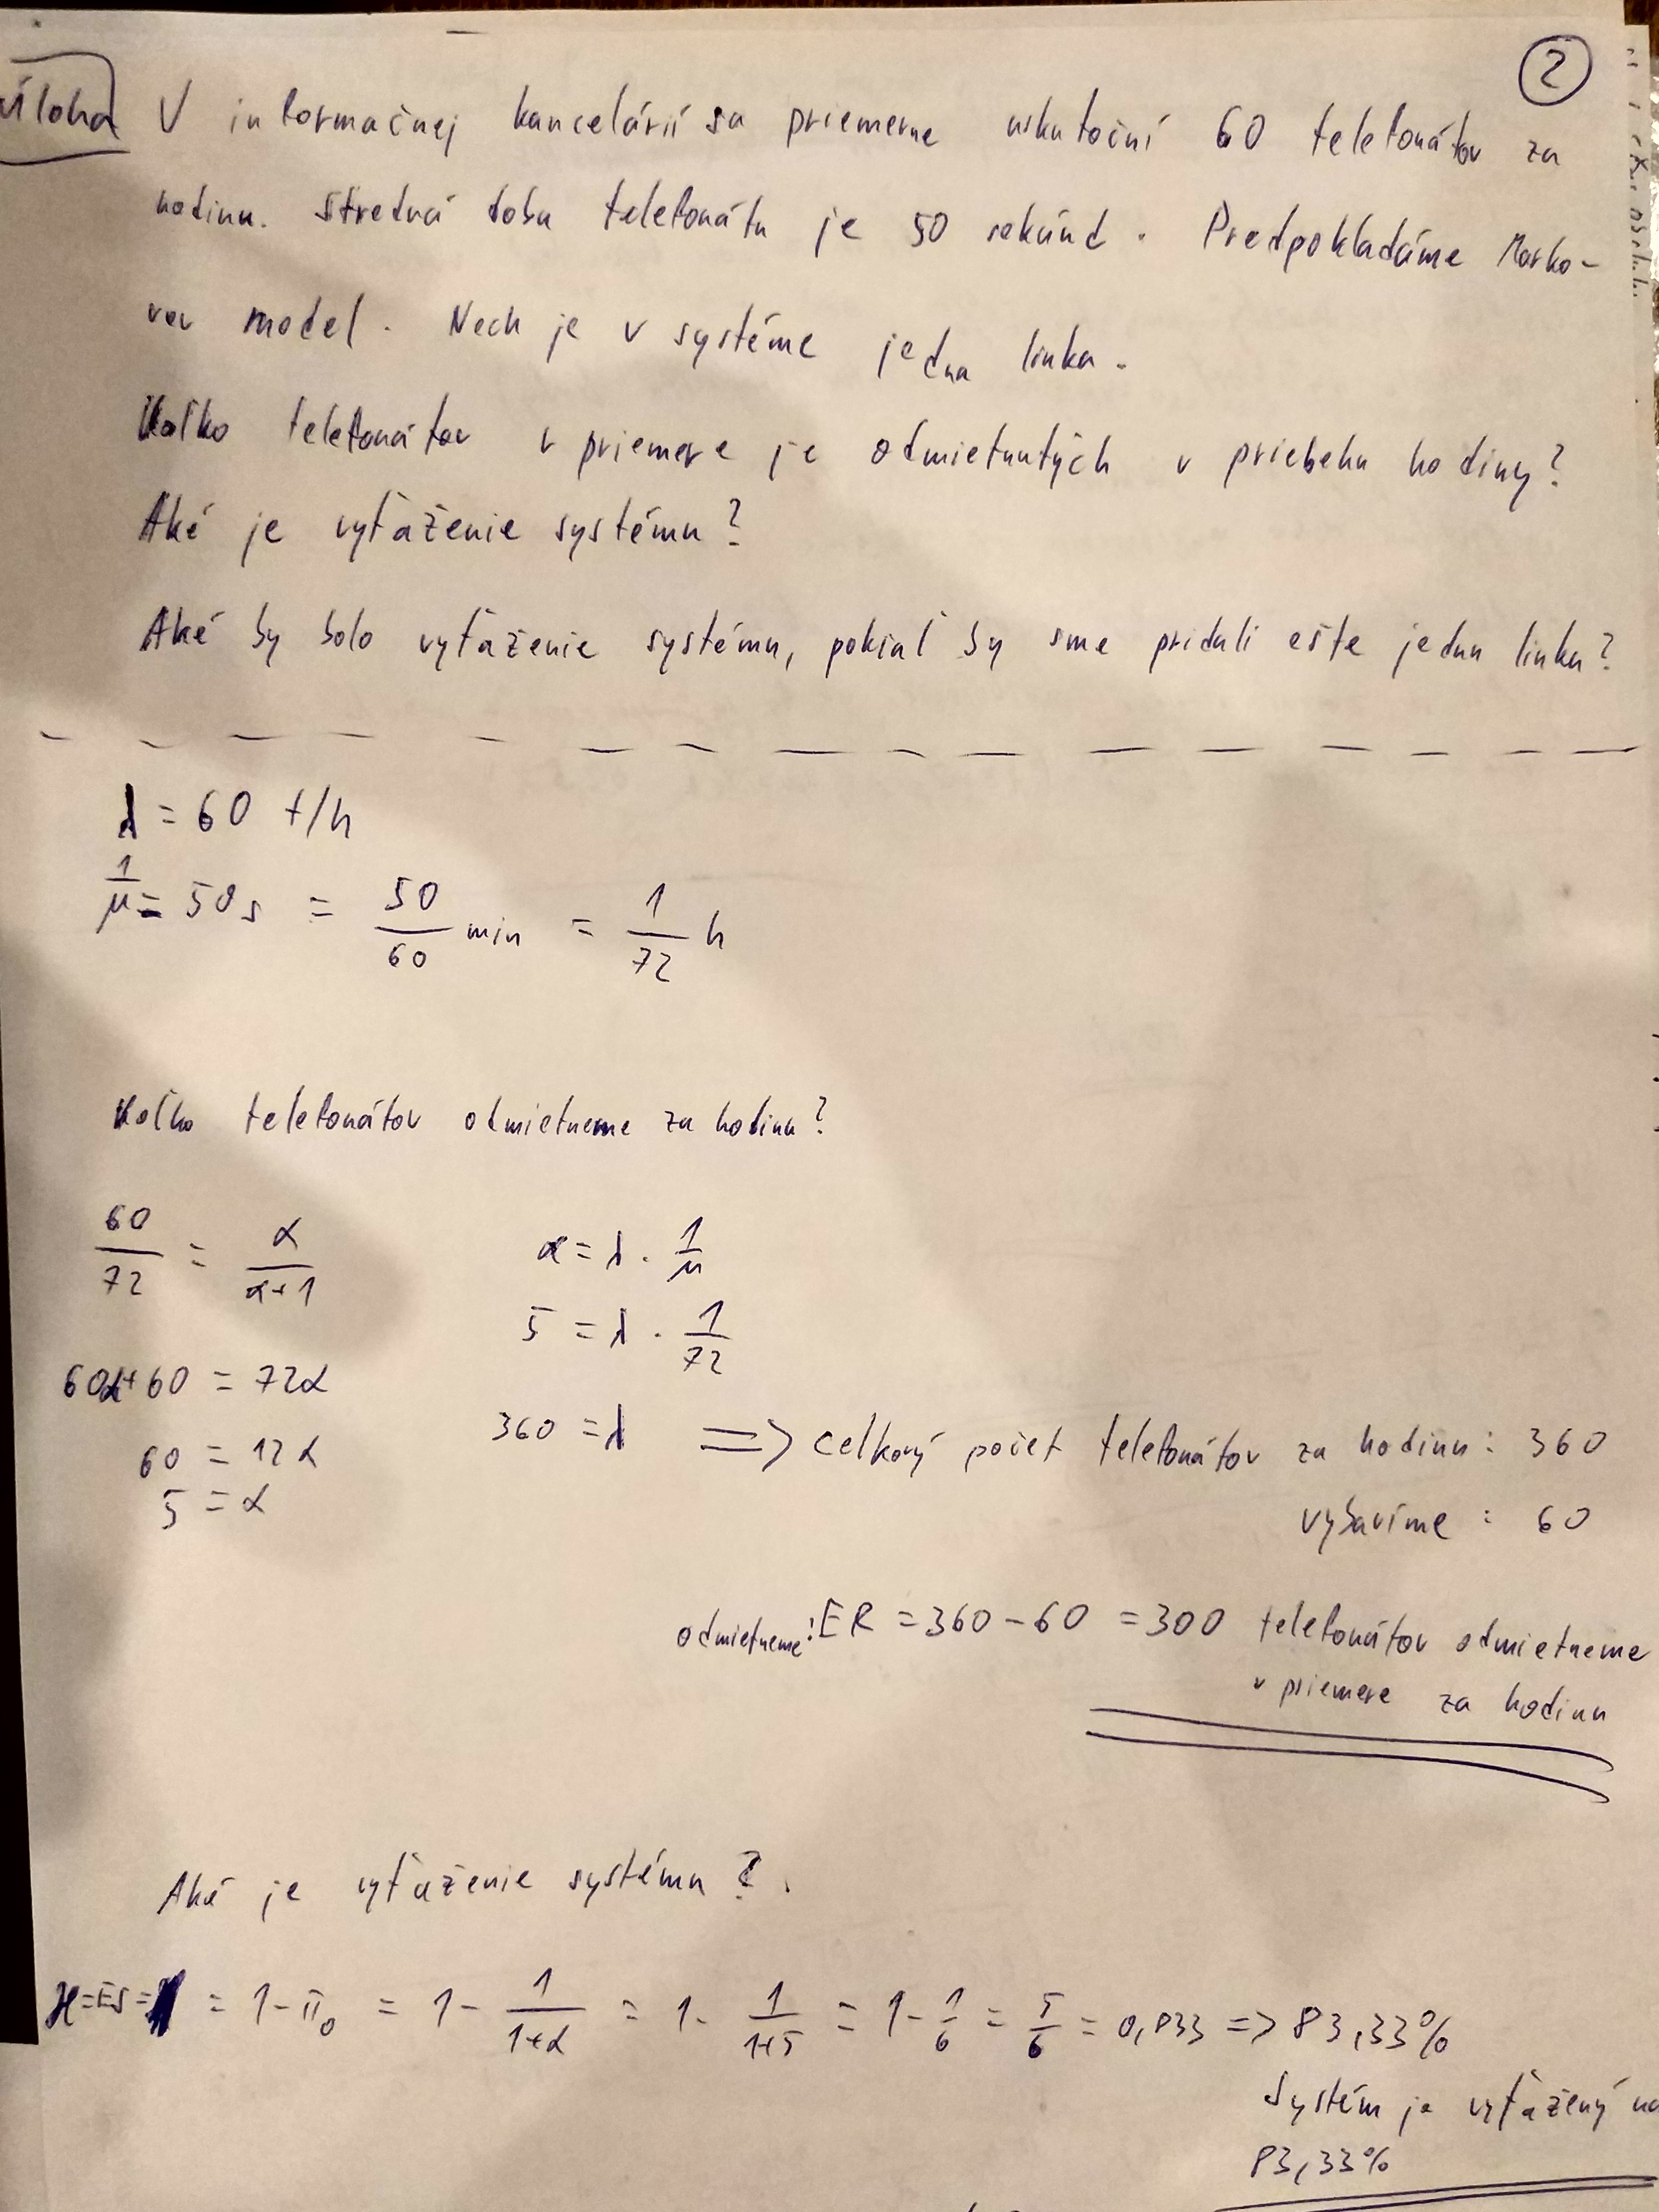 ②
Úloha V informačnej kancelárií sa priemerne uskutoční 60 telefonátov za
hodinu. Stredná doba telefonátu je 50 sekúnd. Predpokladáme Marko-
vov model. Nech je v systéme jedna linka.
Koľko telefonátov v priemere je odmietnutých v priebehu hodiny?
Aké je vyťaženie systému?
Aké by bolo vyťaženie systému, pokiaľ by sme pridali ešte jednu linku?
λ = 60 t/h
1/μ = 50s = 50/60 min = 1/72 h
Koľko telefonátov odmietneme za hodinu?
60/72 = α/(α+1)
α = λ · 1/μ
5 = λ · 1/72
60α+60 = 72α
360 = λ => celkový počet telefonátov za hodinu: 360
60 = 12α
5 = α
vybavíme: 60
odmietneme: ER = 360 - 60 = 300 telefonátov odmietneme
v priemere za hodinu
Aké je vyťaženie systému?
ϰ = ES = = 1 - π₀ = 1 - 1/(1+α) = 1 - 1/(1+5) = 1 - 1/6 = 5/6 = 0,833 => 83,33%
Systém je vyťažený na
83,33%